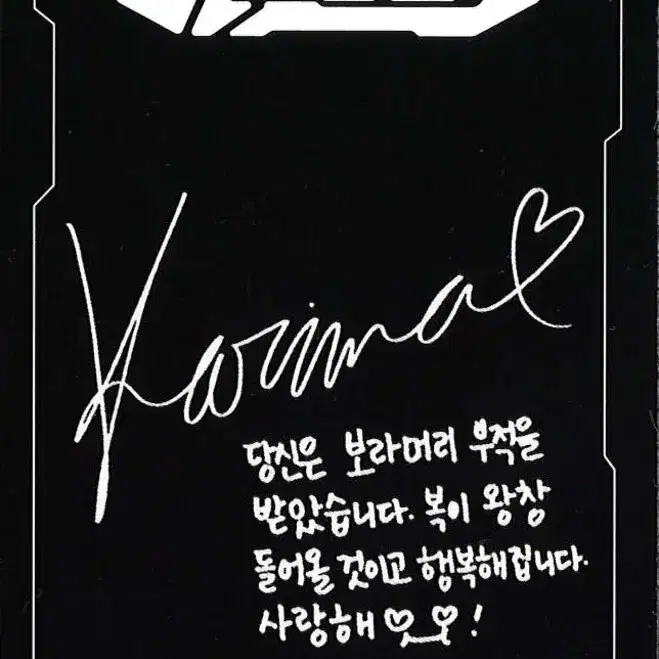 Karina♡
당신은 보라머리 부적을
받았습니다. 복이 왕창
들어올 것이고 행복해집니다.
사랑해 ♡_♡ !